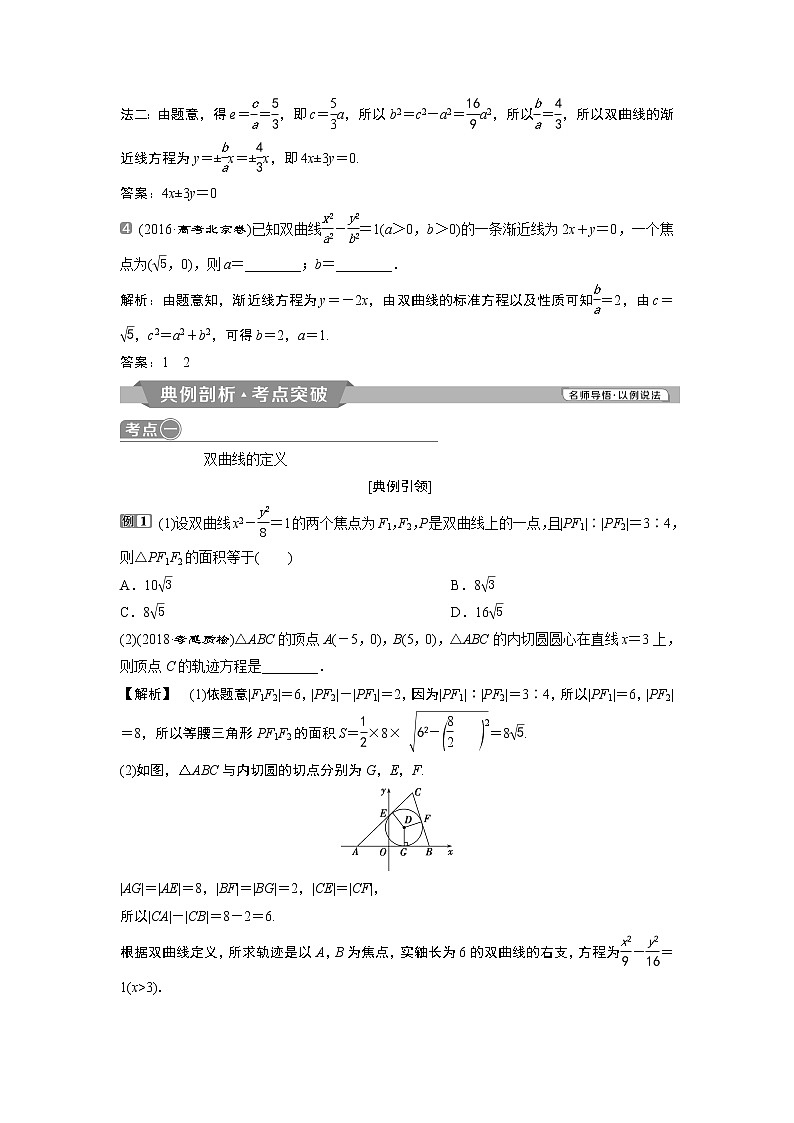 法二：由题意，得 e＝c/a＝5/3，即 c＝5/3a，所以 b²＝c²－a²＝16/9a²，所以b/a＝4/3，所以双曲线的渐
近线方程为 y＝±b/ax＝±4/3x，即 4x±3y＝0.
答案：4x±3y＝0
4 (2016·高考北京卷)已知双曲线x²/a²－y²/b²＝1(a＞0，b＞0)的一条渐近线为 2x＋y＝0，一个焦
点为(√5，0)，则 a＝________；b＝________．
解析：由题意知，渐近线方程为 y＝－2x，由双曲线的标准方程以及性质可知b/a＝2，由 c＝
√5，c²＝a²＋b²，可得 b＝2，a＝1.
答案：1　2
典例剖析·考点突破 名师导悟·以例说法
考点一
双曲线的定义
[典例引领]
例1 (1)设双曲线 x²－y²/8＝1 的两个焦点为 F₁，F₂，P 是双曲线上的一点，且|PF₁|∶|PF₂|＝3∶4，
则△PF₁F₂ 的面积等于(　　)
A．10√3 B．8√3
C．8√5 D．16√5
(2)(2018·孝感质检)△ABC 的顶点 A(－5，0)，B(5，0)，△ABC 的内切圆圆心在直线 x＝3 上，
则顶点 C 的轨迹方程是________．
【解析】　(1)依题意|F₁F₂|＝6，|PF₂|－|PF₁|＝2，因为|PF₁|∶|PF₂|＝3∶4，所以|PF₁|＝6，|PF₂|
＝8，所以等腰三角形 PF₁F₂ 的面积 S＝1/2×8× √(6²－(8/2)²)＝8√5.
(2)如图，△ABC 与内切圆的切点分别为 G，E，F.
y C
E D F
A O G B x
|AG|＝|AE|＝8，|BF|＝|BG|＝2，|CE|＝|CF|，
所以|CA|－|CB|＝8－2＝6.
根据双曲线定义，所求轨迹是以 A，B 为焦点，实轴长为 6 的双曲线的右支，方程为x²/9－y²/16＝
1(x>3)．